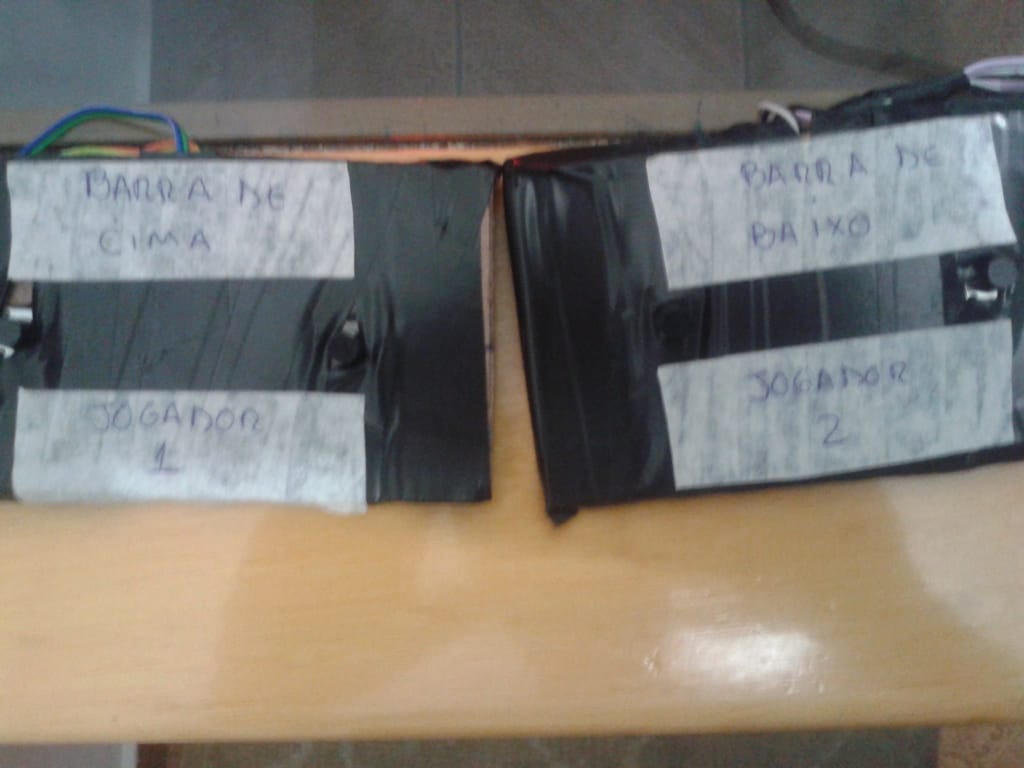 BARRA DE
CIMA
JOGADOR
1
BARRA DE
BAIXO
JOGADOR
2